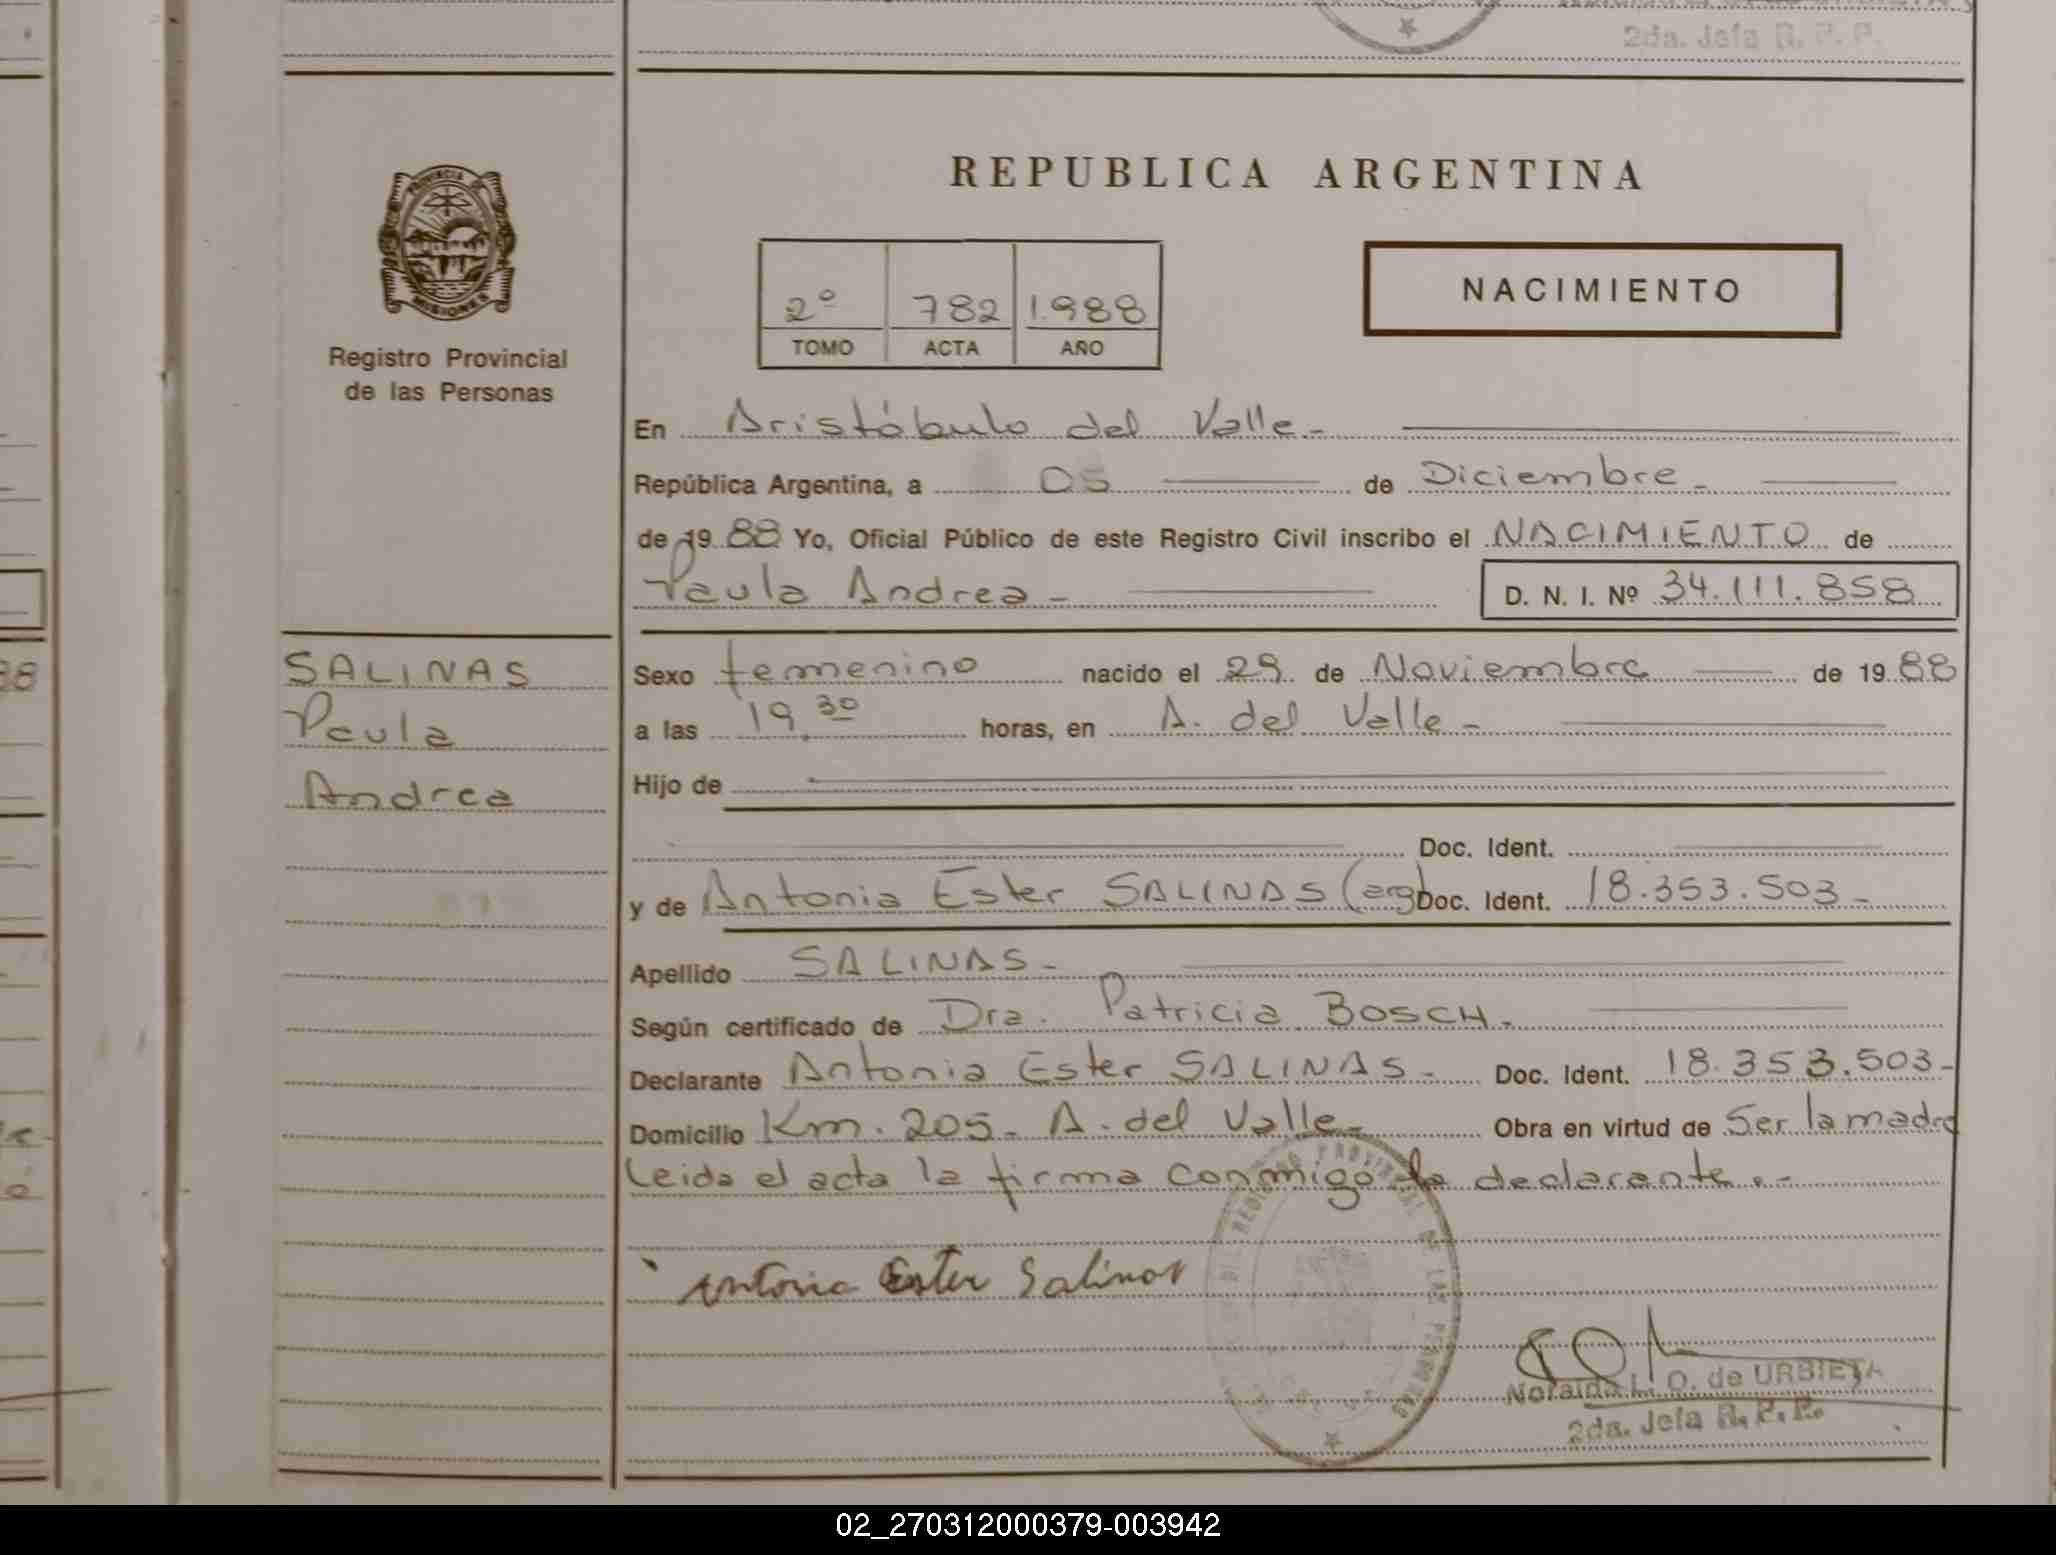 2da. Jefa R. P. P.
PROVINCIA DE
MISIONES
Registro Provincial
de las Personas
REPUBLICA ARGENTINA
2º 782 1.988
TOMO ACTA AÑO
NACIMIENTO
En Aristóbulo del Valle.-
República Argentina, a 05 de Diciembre -
de 19 88 Yo, Oficial Público de este Registro Civil inscribo el NACIMIENTO de
Paula Andrea -
D. N. I. Nº 34.111.858
SALINAS
Paula
Andrea
Sexo femenino nacido el 29 de Noviembre de 19 88
a las 19,30 horas, en A. del Valle -
Hijo de
Doc. Ident.
y de Antonia Ester SALINAS (arg) Doc. Ident. 18.353.503 -
Apellido SALINAS -
Según certificado de Dra. Patricia BOSCH.
Declarante Antonia Ester SALINAS - Doc. Ident. 18.353.503-
Domicilio Km. 205 - A. del Valle - Obra en virtud de Ser la madre
Leida el acta la firma conmigo la declarante.-
Antonia Ester Salinas
REGISTRO PROVINCIAL DE LAS PERSONAS
Noraida L. O. de URBIETA
2da. Jefa R. P. P.
02_270312000379-003942